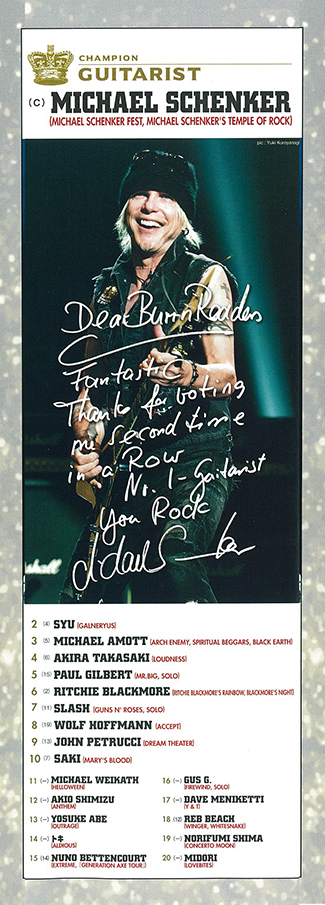 CHAMPION
GUITARIST
(C) MICHAEL SCHENKER
(MICHAEL SCHENKER FEST, MICHAEL SCHENKER'S TEMPLE OF ROCK)
pic : Yuki Kuroyanagi
Dear Burrn Readers
Fantastic
Thanks for voting
me second time
in a Row
No. 1 - Guitarist
You Rock
2 (4) SYU (GALNERYUS)
3 (5) MICHAEL AMOTT (ARCH ENEMY, SPIRITUAL BEGGARS, BLACK EARTH)
4 (6) AKIRA TAKASAKI (LOUDNESS)
5 (15) PAUL GILBERT (MR.BIG, SOLO)
6 (2) RITCHIE BLACKMORE (RITCHIE BLACKMORE'S RAINBOW, BLACKMORE'S NIGHT)
7 (11) SLASH (GUNS N' ROSES, SOLO)
8 (19) WOLF HOFFMANN (ACCEPT)
9 (13) JOHN PETRUCCI (DREAM THEATER)
10 (7) SAKI (MARY'S BLOOD)
11 (–) MICHAEL WEIKATH
(HELLOWEEN)
12 (–) AKIO SHIMIZU
(ANTHEM)
13 (–) YOSUKE ABE
(OUTRAGE)
14 (–) トキ
(ALDIOUS)
15 (14) NUNO BETTENCOURT
(EXTREME, 「GENERATION AXE TOUR」)
16 (–) GUS G.
(FIREWIND, SOLO)
17 (–) DAVE MENIKETTI
(Y & T)
18 (12) REB BEACH
(WINGER, WHITESNAKE)
19 (–) NORIFUMI SHIMA
(CONCERTO MOON)
20 (–) MIDORI
(LOVEBITES)